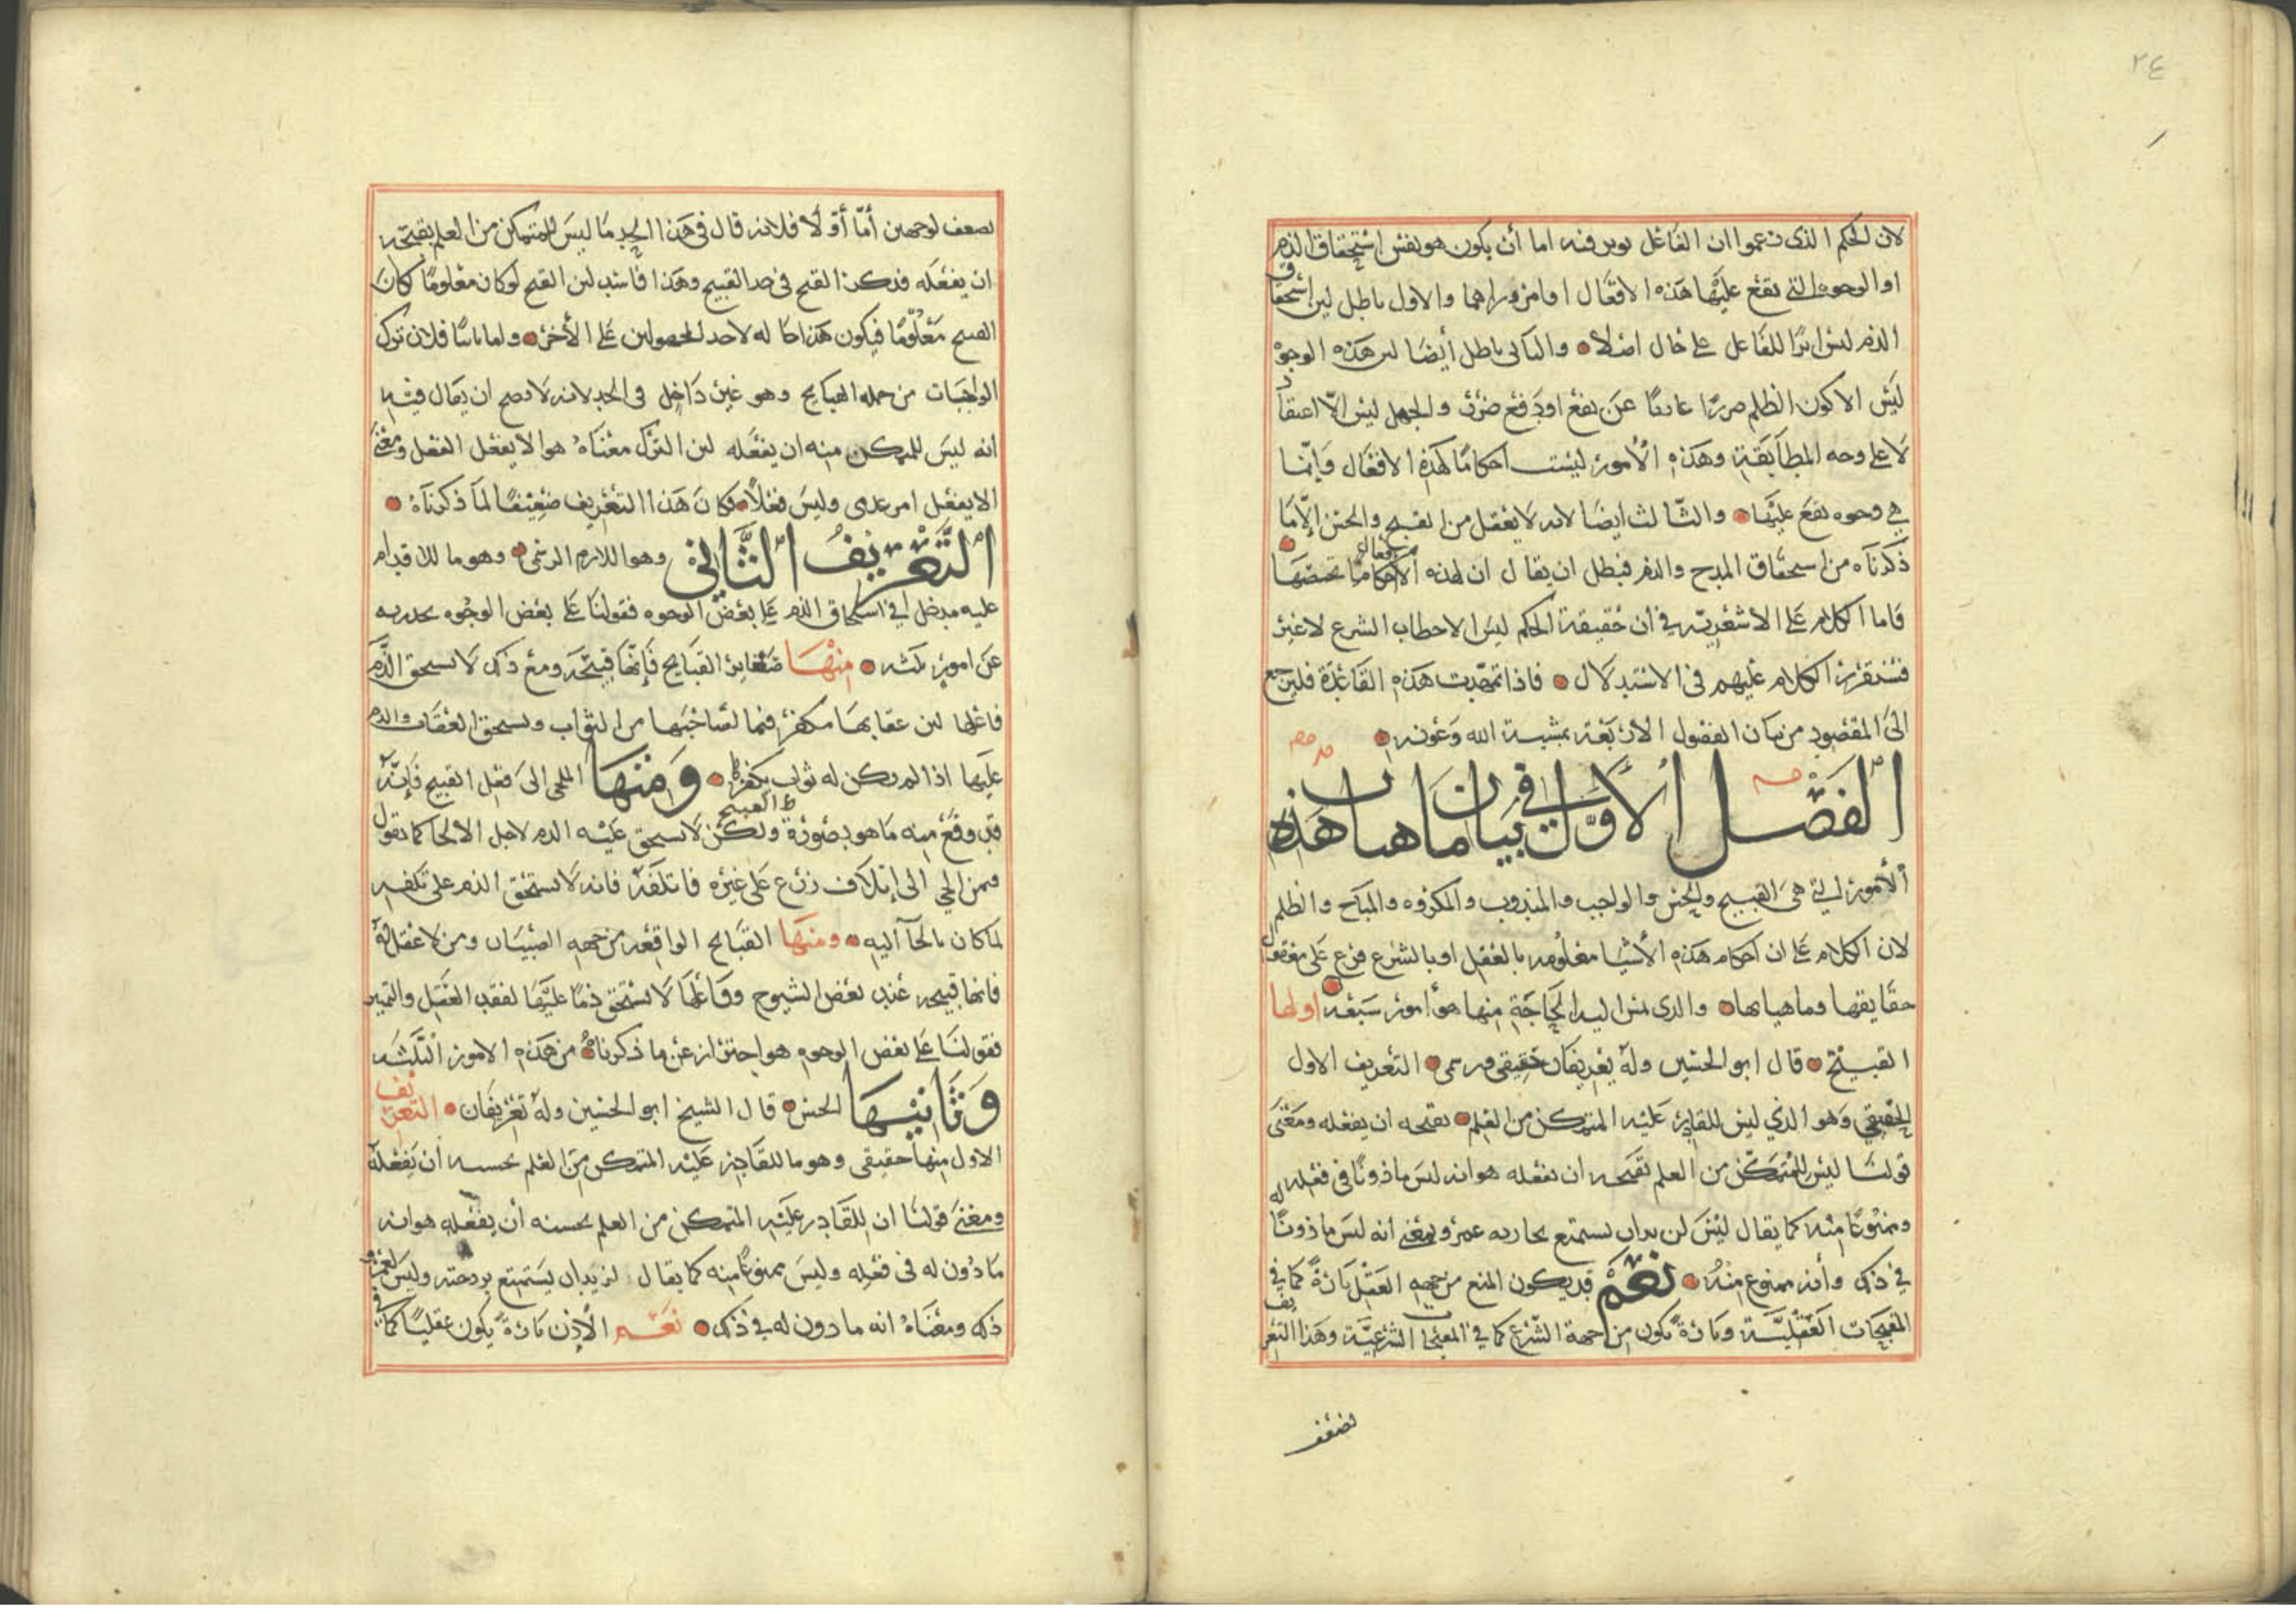 ٢٤
لان الحكم الذى زعموا ان الفاعل يوثر فيه اما أن يكون هو نفس استحقاق الذم
او الوجوه التى يقع عليها هذه الافعال او امر وراهما والاول باطل لان استحقاق
الذم ليس اثرا للفاعل على حال اصلا والثانى باطل أيضا لان هذه الوجوه
ليس الا كون الظلم ضررا عاريا عن نفع او دفع ضرر والجهل ليس الا اعتقادا
لا على وجه المطابقة وهذه الأمور ليست احكاما لهذه الافعال وانما
هي وجوه يقع عليها والثالث ايضا لانه لا يعقل من القبيح والحسن الا ما
ذكرناه من استحقاق المدح والذم فبطل ان يقال ان لهذه الافعال احكاما تخصها
فاما الكلام على الاشعرية في ان حقيقة الحكم ليس الا خطاب الشرع لا غير
فسنقرر الكلام عليهم فى الاستدلال فاذا تمهدت هذه القاعدة فلنرجع
الى المقصود من بيان الفصول الاربعة بمشية الله وعونه
الفصل الأول في بيان ماهيات هذه
الأمور التي هى القبيح والحسن والواجب والمندوب والمكروه والمباح والظلم
لان الكلام على ان احكام هذه الأشيا معلومه بالعقل او بالشرع فرع على معقول
حقايقها وماهياتها والذى تمس اليه الحاجة منها هو أمور سبعة اولها
القبيح قال ابو الحسين وله تعريفان حقيقى ورسمى التعريف الاول
الحقيقي وهو الذي ليس للقادر عليه المتمكن من العلم بقبحه ان يفعله ومعنى
قولنا ليس للمتمكن من العلم بقبحه ان يفعله هو انه ليس ماذونا فى فعله له
وممنوعا منه كما يقال ليس لزيد ان يستمتع بجاريه عمرو بمعنى انه ليس ماذونا
في ذلك وأنه ممنوع منه نعم قد يكون المنع من جهه العقل تارة كما في
المقبحات العقلية وتارة يكون من جهة الشرع كما في المقبحات الشرعية وهذا التعريف
يضعف
يضعف لوجهين أما أولا فلانه قال فى هذا الحد ما ليس للمتمكن من العلم بقبحه
ان يفعله فذكر القبح فى حد القبيح وهذا فاسد لان القبح لو كان معلوما لكان
القبيح معلوما فيكون هذا احاله لاحد المجهولين على الأخر واما ثانيا فلان ترك
الواجبات من جمله القبايح وهو غير داخل فى الحد لانه لا يصح ان يقال فيه
انه ليس للمتمكن منه ان يفعله لان الترك معناه هو الا يفعل الفعل ومعنى
الا يفعل امر عدمى وليس فعلا فكان هذا التعريف ضعيفا لما ذكرناه
التعريف الثاني وهو اللازم الرسمى وهو ما للاقدام
عليه مدخل في استحقاق الذم على بعض الوجوه فقولنا على بعض الوجوه نحترز به
عن امور ثلثه منها صغاير القبايح فإنها قبيحه ومع ذلك لا يستحق الذم
فاعلها لان عقابها مكفر فيما لصاحبها من الثواب ويستحق العقاب والذم
عليها اذا لم يكن له ثواب يكفرها ومنها الملجى الى فعل القبيح فإنه
قد وقع منه ما هو بصورة القبيح ولكن لا يستحق عليه الذم لاجل الالجا كما نقول
فيمن الجي الى إتلاف زرع على غيره فاتلفه فانه لا يستحق الذم على تلفه
لما كان بالجآ اليه ومنها القبايح الواقعه من جهه الصبيان ومن لا عقل له
فانها قبيحه عند بعض الشيوخ وفاعلها لا يستحق ذما عليها لفقد العقل والتمييز
فقولنا على بعض الوجوه هو احتراز عن ما ذكرناه من هذه الامور الثلثه
وثانيها الحسن قال الشيخ ابو الحسين وله تعريفان التعريف
الاول منها حقيقى وهو ما للقادر عليه المتمكن من العلم بحسنه ان يفعله
ومعنى قولنا ان للقادر عليه المتمكن من العلم بحسنه أن يفعله هو انه
ماذون له فى فعله وليس ممنوعا منه كما يقال لزيد ان يستمتع بزوجته وليس لعمرو
ذلك ومعناه انه ماذون له في ذلك نعم الأذن تارة يكون عقليا كما في